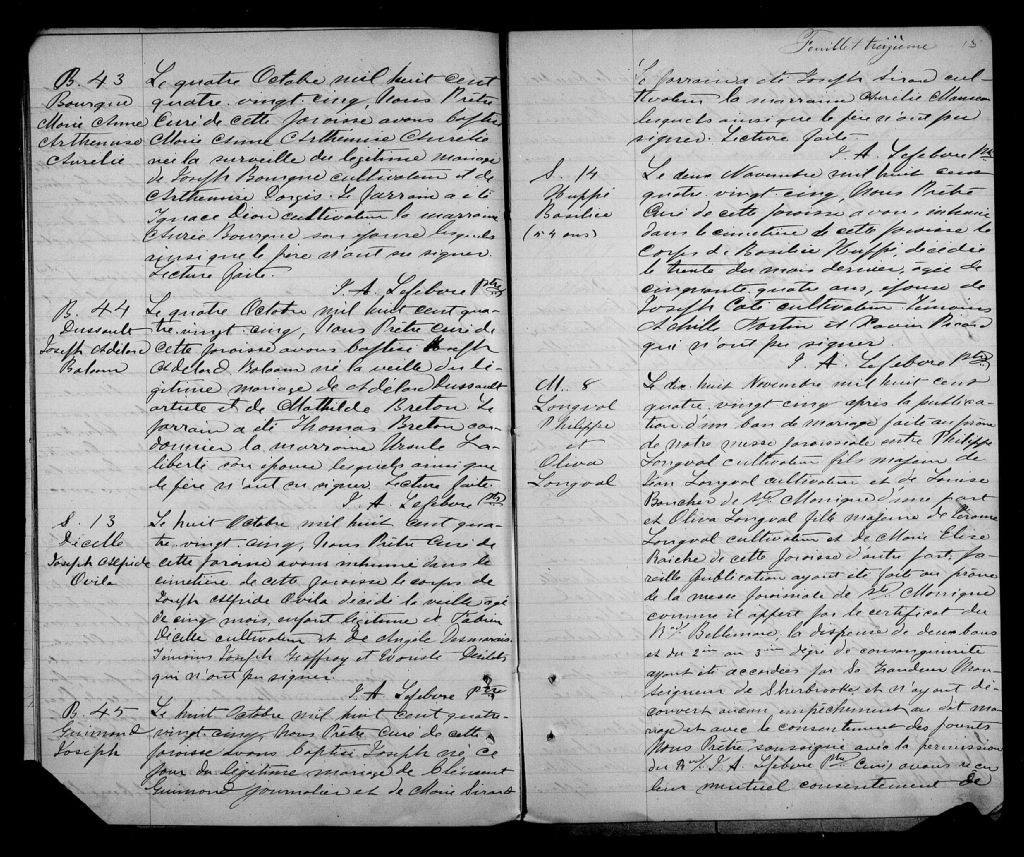 B. 43
Bourque
Marie Anne
Arthémise
Aurélie
Le quatre Octobre mil huit cent
quatre-vingt-cinq, Nous Prêtre
Curé de cette paroisse avons baptisé
Marie Anne Arthémise Aurélie
née la surveille du légitime mariage
de Joseph Bourque cultivateur et de
Arthémise Le parrain a été
Ignace Dion cultivateur la marraine
Bourque son épouse lesquels
ainsi que le père n'ont su signer.
Lecture faite.
J. A. Lefebvre Ptre
B. 44
Dussault
Joseph Adélard
Le quatre Octobre mil huit cent qua-
tre-vingt-cinq, Nous Prêtre curé de
cette paroisse avons baptisé Joseph
Adélard né la veille du lé-
gitime mariage de Adélard Dussault
artiste et de Mathilde Breton Le
parrain a été Thomas Breton cor-
donnier la marraine Ursule La-
liberté son épouse lesquels ainsi que
le père n'ont su signer. Lecture faite.
J. A. Lefebvre Ptre
S. 13
Décelle
Joseph Alfride
Ovila
Le huit Octobre mil huit cent qua-
tre-vingt-cinq, Nous Prêtre Curé de
cette paroisse avons inhumé dans le
cimetière de cette paroisse le corps de
Joseph Alfride Ovila décédé la veille âgé
de cinq mois, enfant légitime de Fabien
Décelle cultivateur et de Angèle Desmarais
Témoins Joseph Geoffroy et Evariste
qui n'ont pu signer.
J. A. Lefebvre Ptre
B. 45
Guimond
Joseph
Le huit Octobre mil huit cent quatre-
vingt-cinq, Nous Prêtre Curé de cette
paroisse avons baptisé Joseph né ce
jour du légitime mariage de Clément
Guimond journalier et de Marie Sirard
Feuillet treizième 13
Le parrain a été Joseph Sirard cul-
tivateur la marraine Aurélie
lesquels ainsi que le père n'ont pu
signer. Lecture faite.
J. A. Lefebvre Ptre
S. 14
Huppé
Basilice
(54 ans)
Le deux Novembre mil huit cent
quatre-vingt-cinq, Nous Prêtre
Curé de cette paroisse avons inhumé
dans le cimetière de cette paroisse le
corps de Basilice Huppé décédée
le trente du mois dernier, âgée de
cinquante quatre ans, épouse de
Joseph Coté cultivateur Témoins
Achille Fortin et Xavier
qui n'ont pu signer.
J. A. Lefebvre Ptre
M. 8
Longval
Philippe
et
Oliva
Longval
Le dix-huit Novembre mil huit cent
quatre-vingt-cinq après la publica-
tion d'un ban de mariage faite au prône
de notre messe paroissiale entre Philippe
Longval cultivateur fils majeur de
Léon Longval cultivateur et de Louise
Boucher de Ste Monique d'une part
et Oliva Longval fille majeure de Jérôme
Longval cultivateur et de Marie Elise
Raiche de cette paroisse d'autre part, pa-
reille publication ayant été faite au prône
de la messe paroissiale de Ste Monique
comme il appert par le certificat du
Rvd Bellemare, la dispense de deux bans
et du 2me au 3me dégré de consanguinité
ayant été accordée par Sa Grandeur Mon-
seigneur de Sherbrooke et n'ayant dé-
couvert aucun empêchement au dit ma-
riage et avec le consentement des parents
Nous Prêtre soussigné avec la permission
du Rvd J. A. Lefebvre Ptre Curé, avons reçu
leur mutuel consentement de